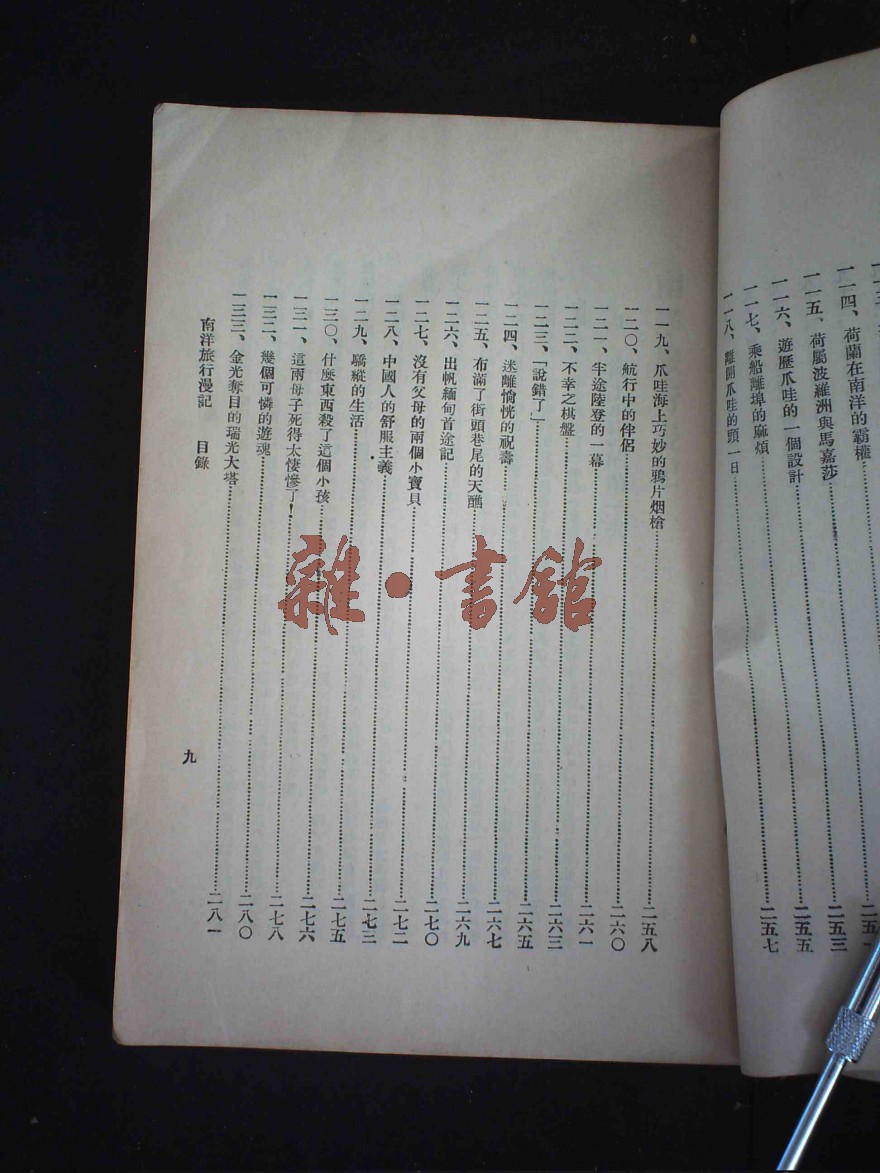 一一四、荷蘭在南洋的霸權……二五一
一一五、荷屬波羅洲與馬嘉莎……二五三
一一六、遊歷爪哇的一個設計……二五五
一一七、乘船離埠的麻煩……二五七
一一八、離開爪哇的頭一日……
一一九、爪哇海上巧妙的鴉片烟槍……二五八
一二〇、航行中的伴侶……二六〇
一二一、半途陸登的一幕……二六一
一二二、不幸之棋盤……二六三
一二三、「說錯了」……二六五
一二四、迷離惝恍的祝壽……二六七
一二五、布滿了街頭巷尾的天醮……二六九
一二六、出帆緬甸首途記……二七〇
一二七、沒有父母的兩個小寶貝……二七二
一二八、中國人的舒服主義……二七三
一二九、驕縱的生活……二七五
一三〇、什麽東西殺了這個小孩……二七六
一三一、這兩母子死得太悽慘了！……二七八
一三二、幾個可憐的遊魂……二八〇
一三三、金光奪目的瑞光大塔……二八一
南洋旅行漫記　目錄
九
雜·書館